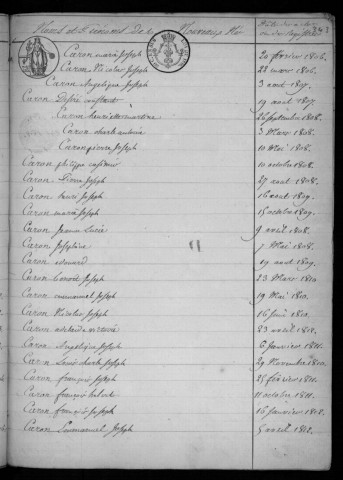 Noms et Prénoms des Nouveaux Nés
243
Caron marie Joseph 20 fevrier 1806.
Caron Nicolas Joseph 28 mars 1806.
Caron Angelique Joseph 3 aout 1807.
Caron Désiré constant 19 aout 1807.
Caron henri 26 septembre 1808.
Caron charle 3 Mars 1808.
Caron pierre Joseph 10 Mai 1808.
Caron philippe casimir 10 octobre 1808.
Caron Pierre Joseph 27 aout 1808.
Caron henri Joseph 16 aout 1809.
Caron marie Joseph 15 octobre 1809.
Caron Jeanne Lucie 9 avril 1808.
Caron Josephine 7 Mai 1808.
Caron edouard 19 aout 1809.
Caron benoit Joseph 23 Mars 1810.
Caron emmanuel Joseph 19 Mai 1810.
Caron Nicolas Joseph 16 Juin 1810.
Caron adelaide victoire 23 avril 1812.
Caron Angelique Joseph 6 Janvier 1811.
Caron Louis charle Joseph 29 Novembre 1810.
Caron françois Joseph 25 fevrier 1811.
Caron françois hubert 11 octobre 1811.
Caron françois Joseph 16 Janvier 1812.
Caron Emmanuel Joseph 5 avril 1812.